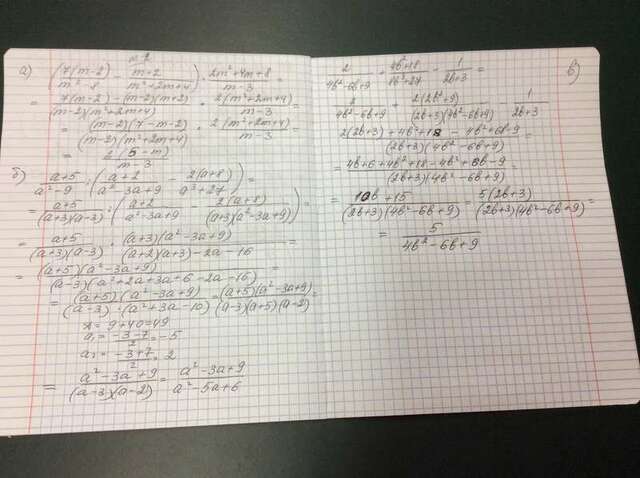 а) (7(m-2)/(m³-8) - (m+2)/(m²+2m+4)) · (2m²+4m+8)/(m-3) =
= (7(m-2)-(m-2)(m+2))/((m-2)(m²+2m+4)) · 2(m²+2m+4)/(m-3) =
= (m-2)(7-m-2)/((m-2)(m²+2m+4)) · 2(m²+2m+4)/(m-3) =
= 2(5-m)/(m-3)
б) (a+5)/(a²-9) : ((a+2)/(a²-3a+9) - 2(a+8)/(a³+27)) =
= (a+5)/((a+3)(a-3)) : ((a+2)/(a²-3a+9) - 2(a+8)/((a+3)(a²-3a+9))) =
= (a+5)/((a+3)(a-3)) · (a+3)(a²-3a+9)/((a+2)(a+3)-2a-16) =
= (a+5)(a²-3a+9)/((a-3)(a²+2a+3a+6-2a-16)) =
= (a+5)(a²-3a+9)/((a-3)·(a²+3a-10)) = (a+5)(a²-3a+9)/((a-3)(a+5)(a-2)) =
= 9+40=49
a₁ = (-3-7)/2 = -5
a₂ = (-3+7)/2 = 2
= (a²-3a+9)/((a-3)(a-2)) = (a²-3a+9)/(a²-5a+6)
в)
2/(4b²-6b+9) + (4b²+18)/(8b³+27) - 1/(2b+3) =
2/(4b²-6b+9) + 2(2b²+9)/((2b+3)(4b²-6b+9)) - 1/(2b+3)
(2(2b+3)+4b²+18-4b²+6b-9)/((2b+3)(4b²-6b+9)) =
= (4b+6+4b²+18-4b²+6b-9)/((2b+3)(4b²-6b+9)) =
= (10b+15)/((2b+3)(4b²-6b+9)) = 5(2b+3)/((2b+3)(4b²-6b+9)) =
= 5/(4b²-6b+9)